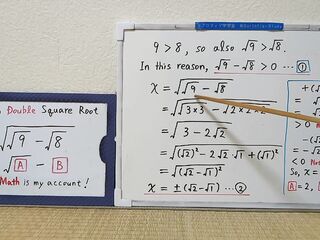 Double Square Root
√√9 - √8
A - B
Math is my account!
9 > 8, so also √9 > √8.
In this reason, √9 - √8 > 0 … ①
x = √√9 - √8
= √√3×3 - √2×2×2
= √3 - 2√2
= √(√2)² - 2√2·√1 + (√1)²
= √(√2 - √1)²
x = ± (√2 - √1) … ②
+(√
> 0
-(√
< 0 No
So, x =
A = 2,